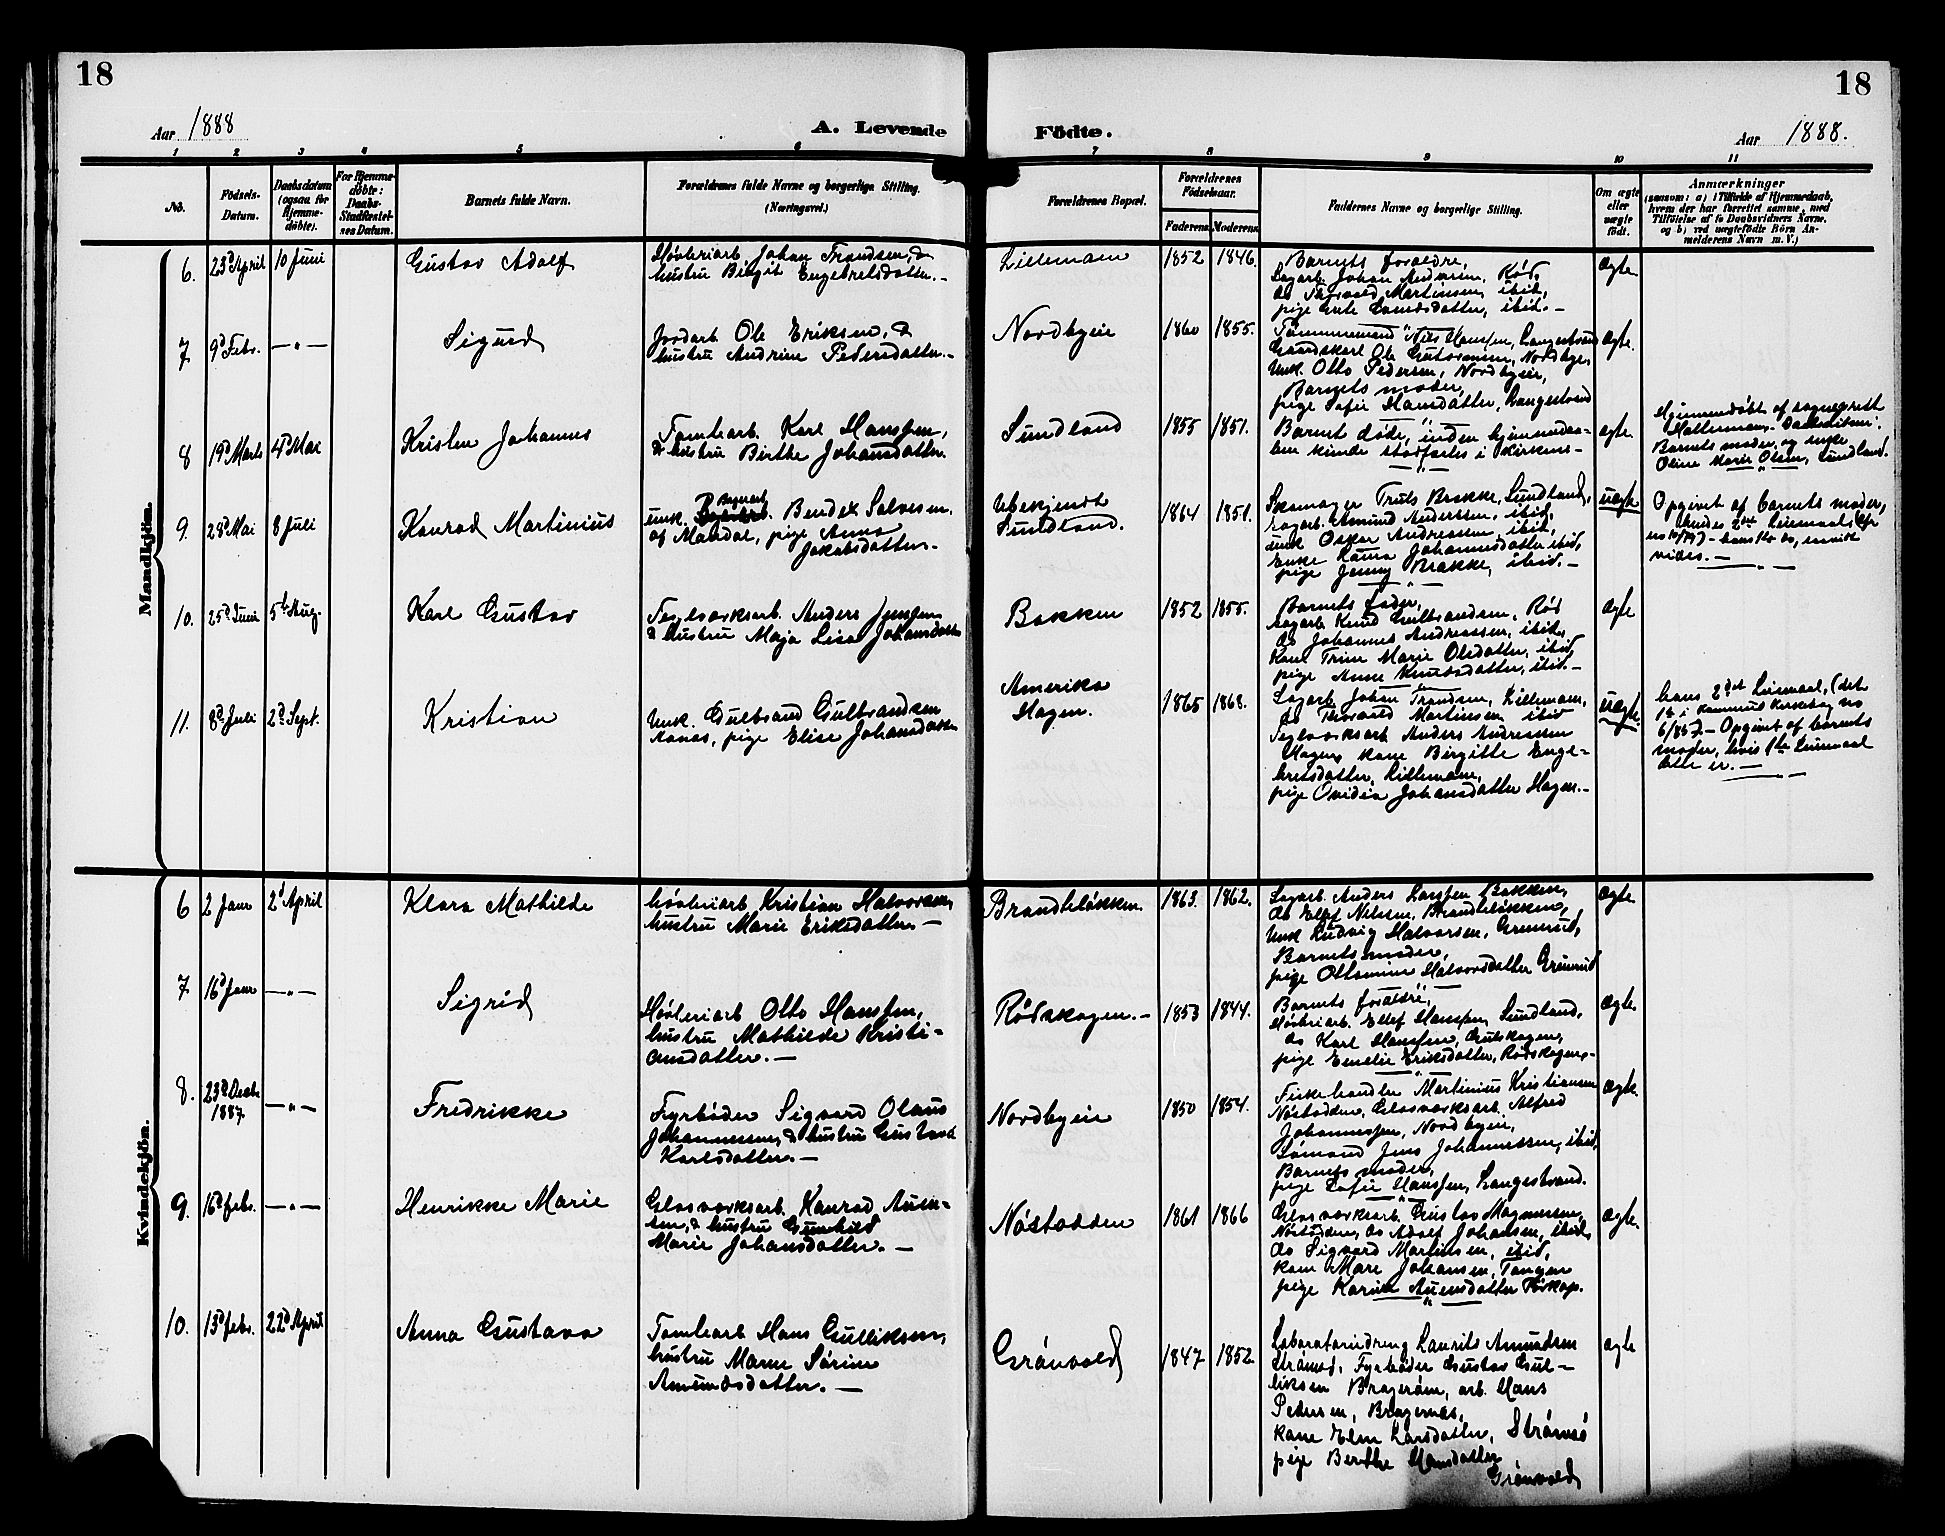 18
18
Aar 1888
A. Levende
Födte.
Aar 1888.
1 2 3 4 5 6 7 8 9 10 11
No.
Födsels-
Datum.
Daabsdatum
(ogsaa for
Hjemme-
döbte).
For Hjemme-
döbte:
Daabs-
Stadfæstel-
ses Datum.
Barnets fulde Navn.
Forældrenes fulde Navne og borgerlige Stilling.
(Næringsvei.)
Forældrenes Bopæl.
Forældrenes
Födselsaar.
Faderens
Moderens
Faddernes Navne og borgerlige Stilling.
Om ægte
eller
uægte
födt.
Anmærkninger
(saasom: a) i Tilfælde af Hjemmedaab,
hvem der har forrettet samme, med
Tilföielse af to Daabsvidners Navne,
og b) ved uægtefödte Börn An-
melderens Navn m. V.)
Mandkjön.
6. 23d April 10 Juni
Gustav Adolf
Høvleriarb. Johan Trondsen, &
hustru Birgit Engebretsdatter. —
Lillemoen
1852 1846.
Barnets forældre,
Sagarb. Johan Andersen, Rød,
do Thorvald Martinsen, ibid,
pige
ibid. —
ægte
7 9d Febr. — " —
Sigurd
Jordarb Ole Eriksen, &
hustru Andrine Pedersdatter. —
Nordbyeie
1860 1855.
Tømmermand Nils Hanssen, Langestrand
Gaardskarl Ole Gutormsen, Nordbye,
Unk. Otto Pedersen, Nordbyeie,
Barnets moder,
pige Sofie Hansdatter, Langestrand
ægte.
8 19d Marts 4d Mai
Kristen Johannes
Tomtearb. Karl Hanssen,
& hustru Birthe Johansdatter.
Sundland
1855 1851.
Barnet døde, inden hjemmedaa-
ben kunde stadfæstes i kirken. —
— " —
ægte.
Hjemmedøbt af sogneprest
Barnets moder og enke
Oline Marie Olsen, Sundland.
9. 28d Mai 8 Juli
Konrad Martinius
unk. Bendix Salvesen
af Mandal, pige Anna
Jakobsdatter. —
Ubekjendt
Sundland.
1864 1851.
Skomager Truls Brække, Sundland,
sagarb. Amund Anderssen, ibid,
unk Oskar Andreassen, ibid,
Enke Laura Johannesdatter ibid,
pige Jenny Brække, ibid. —
uægte
Opgivet af barnets moder,
hendes 2det Leiermaal
vides. —
10. 25d Juni 5te Aug.
Karl Gustav
Teglværksarb. Anders Jenssen
& hustru Maja Lisa Johansdatter
Bakken
1852 1855.
Barnets fader,
sagarb. Knud Gulbrandsen, Rød
do Johannes Andreassen, ibid,
Kone Trine Marie Olsdatter, ibid,
pige Anne Knudsdatter, ibid. —
ægte
11. 8d Juli 2d Sept.
Kristian
Unk. Gulbrand Gulbrandsen
Aanæs, pige Elise Johansdatter
Amerika
Hagen.
1865 1868.
Sagarb. Johan Trondsen, Lillemoen,
do Thorvald Martinsen ibid
Teglværksarb Anders Andressen
Hagen, kone Birgitte Enge-
bretsdatter, Lillemoen,
pige Ovidia Johansdatter Hagen. —
uægte.
hans 2det Leiermaal, (det
1ste i
6/857. — Opgivet af barnets
moder, hvis 1ste Leiermaal
dette er. —
Kvindekjön.
6 2 Janr 2d April
Klara Mathilde
høvleriarb Kristian Halvorsen,
hustru Marie Eriksdatter. —
Brandtløkken.
1863. 1862.
Sagarb. Anders Larssen Bakken,
do Ellef Nilsen, Brandtløkken,
Unk Ludvig Halvorsen, Grønrud,
Barnets moder,
pige Ottomine Halvorsdatter Grønrud
ægte
7 16d Janr — " —
Sigrid
Høvleriarb Otto Hanssen,
hustru Mathilde Kristi-
ansdatter. —
Rødskogen. —
1853 1844.
Barnets forældre,
Høvleriarb. Ellef Hanssen, Sundland,
do Karl Hanssen, Gulskogen,
pige Emelie Eriksdatter, Rødskogen. —
ægte.
8. 23d Decbr
1887. — " —
Fredrikke
Fyrbøder Sigvard Olaus
Johannessen, & hustru Gustava
Karlsdatter. —
Nordbyeie
1850 1854.
Fiskehandler Martinius Kristiansen
Nøstodden, Glasværksarb. Alfred
Johannessen, Nordbyeie,
Sømand Jens Johannessen, ibid,
Barnets moder,
pige Sofie Hanssen, Langestrand.
ægte.
9. 16d febr. — " —
Henrikke Marie
Glasværksarb. Konrad Auen-
sen, & hustru Gunhild
Marie Johansdatter. —
Nøstodden
1861 1866
Glasværksarb. Gustav Magnussen,
Nøstodden, do Adolf Johansen, ibid,
do Sigvard Martinsen, ibid,
kone Mare Johansen, Tangen
pige Karine Auensdatter
ægte.
10. 13d febr. 22d April
Anna Gustava
Tomtearb Hans Gulliksen,
hustru Maren Sørine
Amundsdatter. —
Grønvold
1847 1852
Laboratoriedreng Laurits Amundsen
Strømsø, Fyrbøder Gustav Gul-
liksen Bragerøen, arb. Hans
Pedersen, Bragernæs,
kone Elen Larsdatter, Strømsø
pige Berthe Hansdatter
Grønvold
ægte